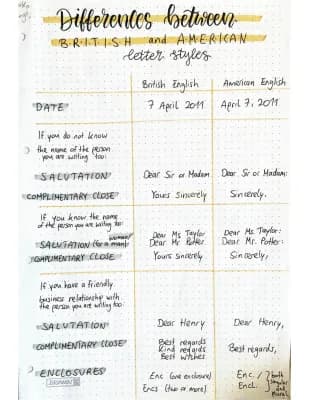 Differences between
BRITISH and AMERICAN
letter styles
British English American English
DATE 7 April 2011 April 7, 2011
If you do not know
the name of the person
you are writing too:
SALUTATION Dear Sir or Madam Dear Sir or Madam:
COMPLIMENTARY CLOSE Yours Sincerely Sincerely,
If you know the name
of the person you are writing too:
woman/
SALUTATION (for a man) Dear Ms Taylor Dear Ms. Taylor:
Dear Mr Potter Dear Mr. Potter:
COMPLIMENTARY CLOSE Yours sincerely Sincerely,
If you have a friendly
business relationship with
the person you are writing too:
SALUTATION Dear Henry Dear Henry,
COMPLIMENTARY CLOSE Best regards Best regards,
Kind regards
Best wishes
ENCLOSURES Enc (one enclosure) Enc. / both
Encs (two or more) Encl. singular and
plural